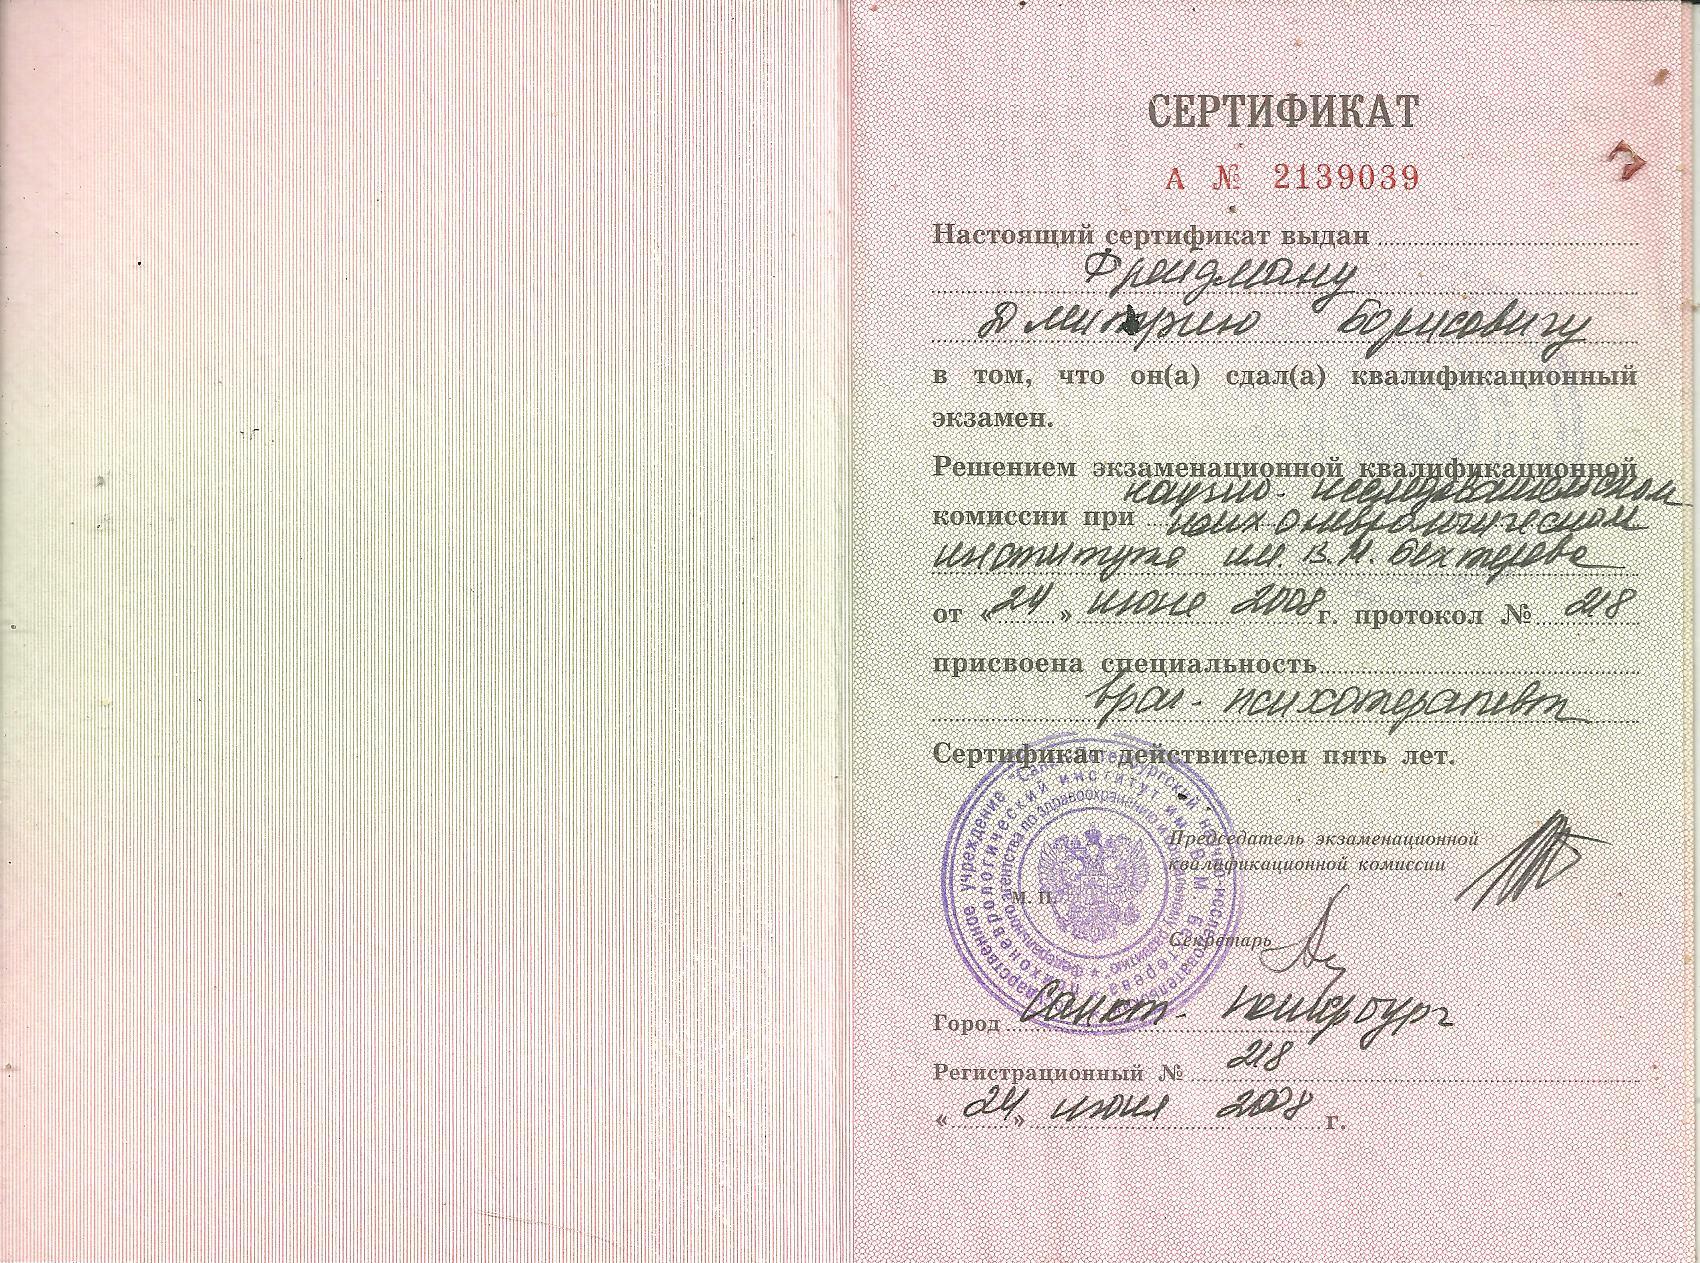 СЕРТИФИКАТ
А № 2139039
Настоящий сертификат выдан
Фрейдману
Дмитрию Борисовичу
в том, что он(а) сдал(а) квалификационный
экзамен.
Решением экзаменационной квалификационной
научно-исследовательском
комиссии при психоневрологическом
институте им. В.М. Бехтерева
от «24» июня 2008 г. протокол № 218
присвоена специальность
врач-психотерапевт
Сертификат действителен пять лет.
Председатель экзаменационной
квалификационной комиссии
М. П.
Секретарь
Город Санкт-Петербург
Регистрационный № 218
«24» июня 2008 г.
государственное учреждение "Санкт-Петербургский научно-исследовательский
психоневрологический институт им. В. М. Бехтерева
Федерального агентства по здравоохранению и социальному развитию"